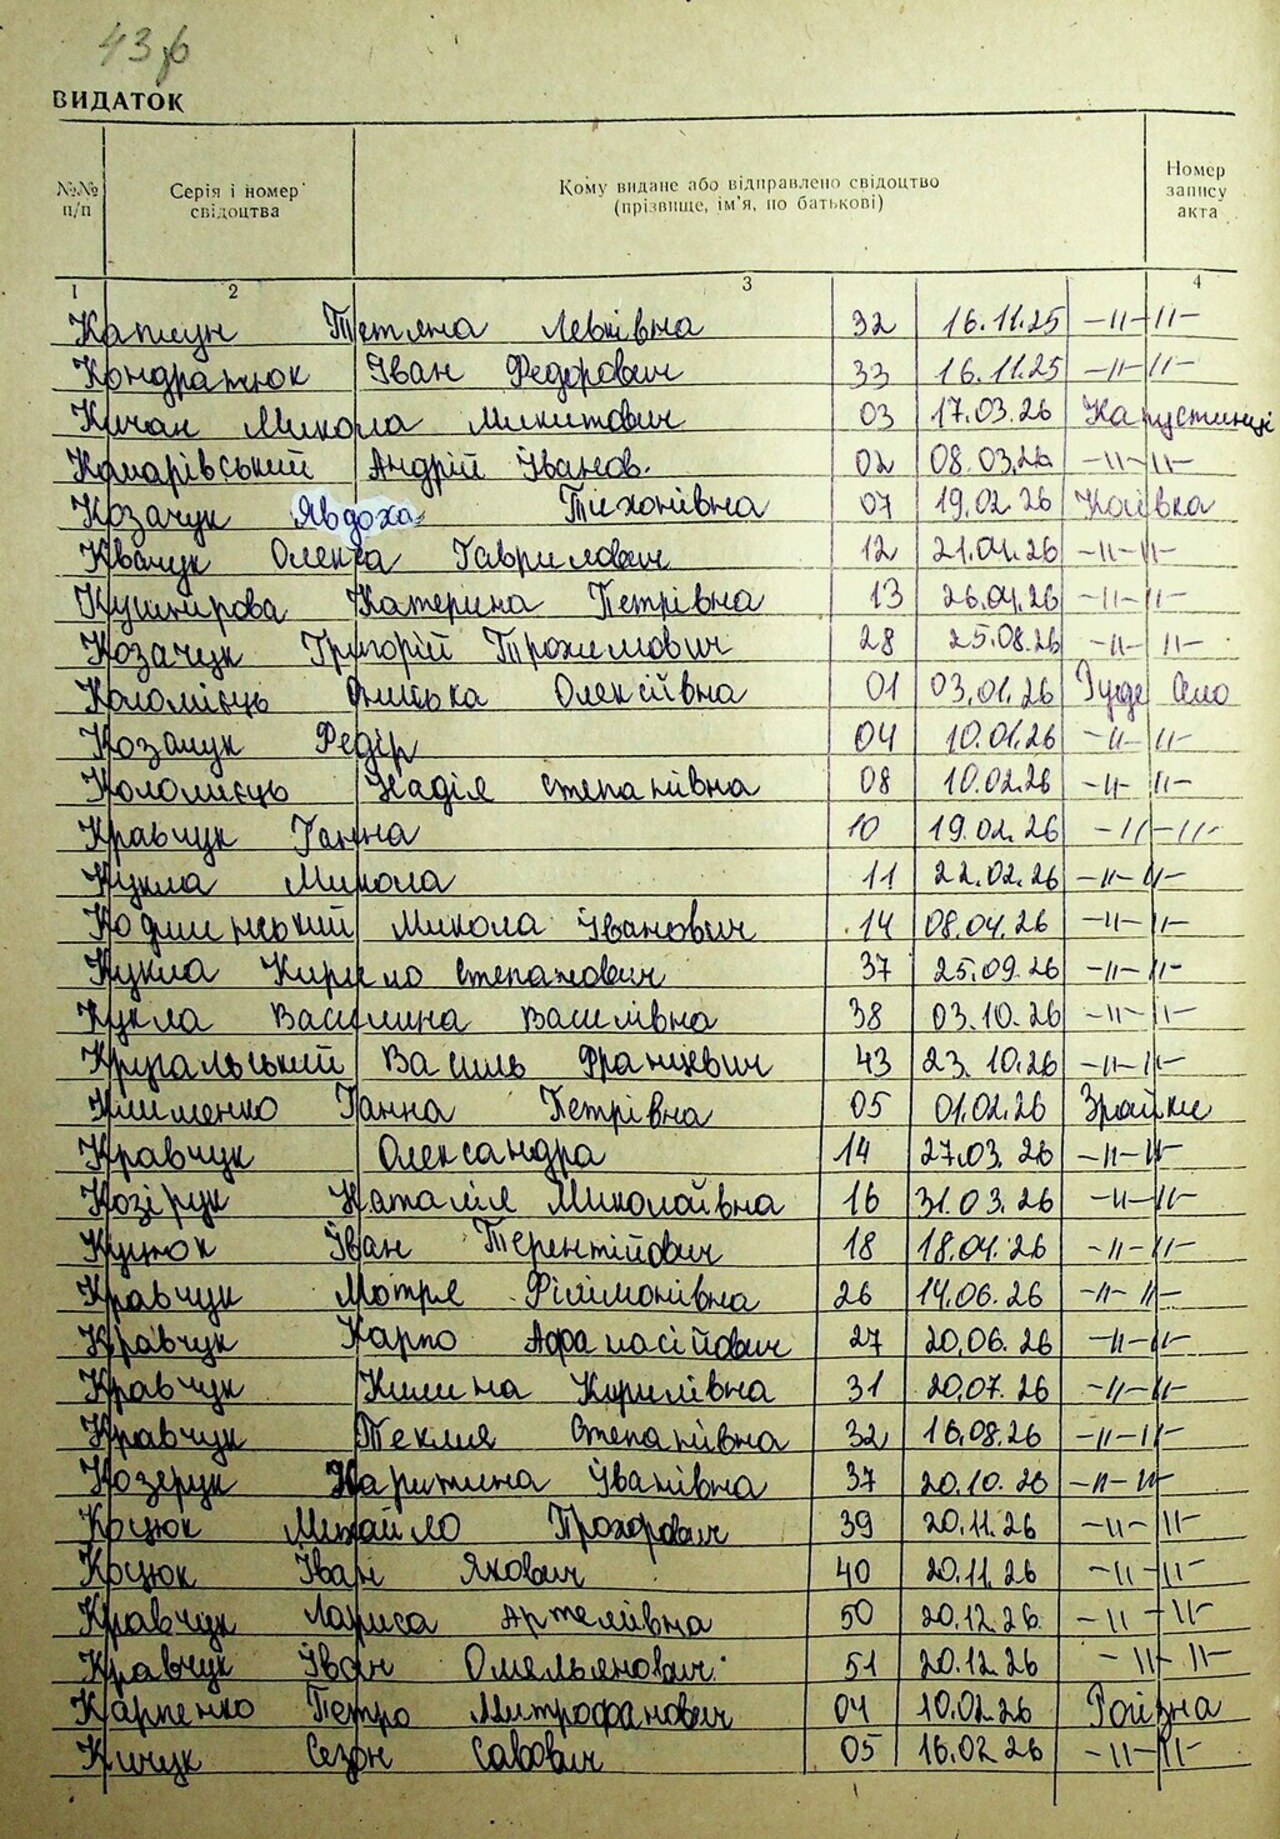 43
ВИДАТОК
№№ п/п
Серія і номер свідоцтва
Кому видане або відправлено свідоцтво (прізвище, ім'я, по батькові)
Номер запису акта
1 2 3 4
Тетяна Левківна 32 16.11.25 -//-//-
Кондратюк Іван Федорович 33 16.11.25 -//-//-
Кичан Микола Микитович 03 17.03.26 Капустинці
Комарівський Андрій Іванов. 02 08.03.26 -//-//-
Козачук Явдоха Тихонівна 07 19.02.26
Квачук Олекса Гаврилович 12 21.04.26 -//-//-
Кушнірова Катерина Петрівна 13 26.04.26 -//-//-
Козачук Григорій Трохимович 28 25.08.26 -//-//-
Коломієць Олексіївна 01 03.01.26 Руде Село
Козачук Федір 04 10.01.26 -//-//-
Коломієць Надія Степанівна 08 10.02.26 -//-//-
Кравчук Ганна 10 19.02.26 -//-//-
Кукла Микола 11 22.02.26 -//-//-
Микола Іванович 14 08.04.26 -//-//-
Кукла Кирило Степанович 37 25.09.26 -//-//-
Кукла Василина Василівна 38 03.10.26 -//-//-
Кругальський Василь Францевич 43 23.10.26 -//-//-
Клименко Ганна Петрівна 05 01.02.26 Зрайки
Кравчук Олександра 14 27.03.26 -//-//-
Козірук Наталія Миколаївна 16 31.03.26 -//-//-
Куцюк Іван Терентійович 18 18.04.26 -//-//-
Кравчук Мотря Філімонівна 26 14.06.26 -//-//-
Кравчук Карпо Афанасійович 27 20.06.26 -//-//-
Кравчук Килина Кирилівна 31 20.07.26 -//-//-
Кравчук Теклия Степанівна 32 16.08.26 -//-//-
Козерук Харитина Іванівна 37 20.10.26 -//-//-
Коцюк Михайло Прохорович 39 20.11.26 -//-//-
Коцюк Іван Якович 40 20.11.26 -//-//-
Кравчук Лариса Артемівна 50 20.12.26 -//-//-
Кравчук Іван Омельянович 51 20.12.26 -//-//-
Карпенко Петро Митрофанович 04 10.02.26
Кичук Сезон Савович 05 16.02.26 -//-//-